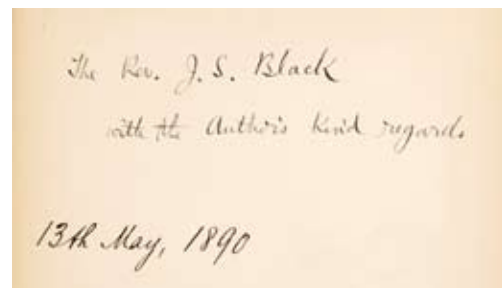 The Rev. J. S. Black
with the Author's kind regards
13th May, 1890